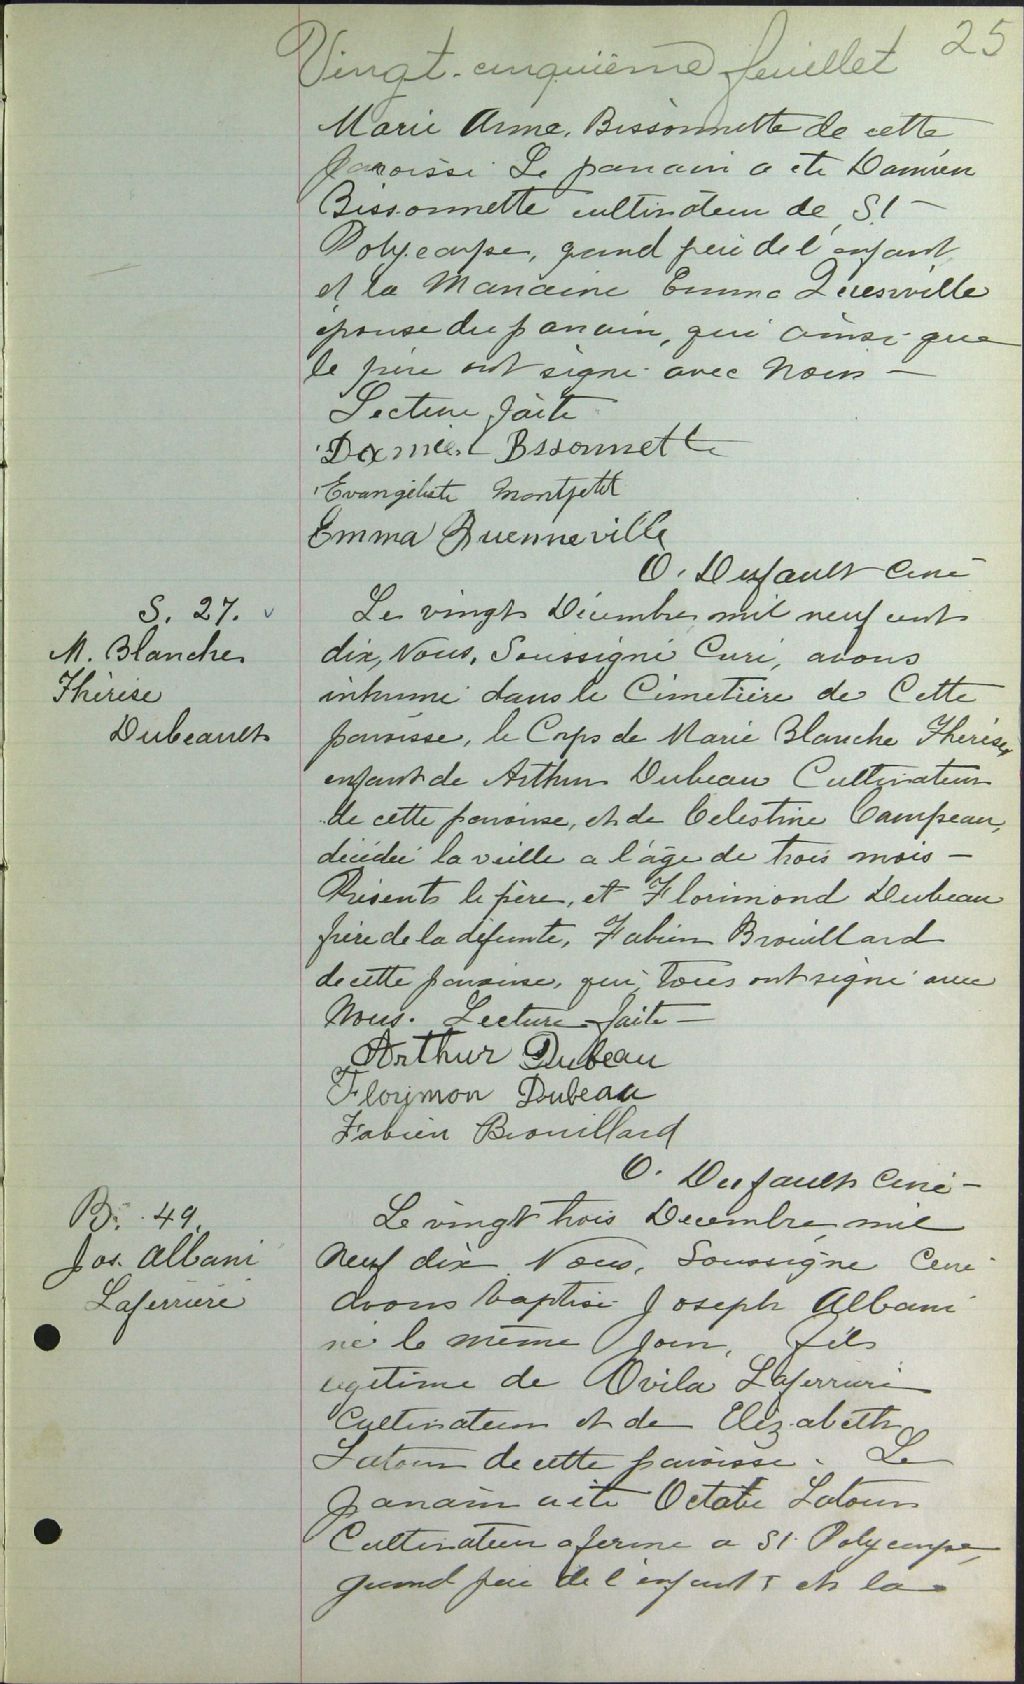 Vingt-cinquième feuillet 25
Marie Anna Bissonnette de cette
paroisse. Le parrain a été Damien
Bissonnette cultivateur de St
Polycarpe, grand père de l'enfant
et la Marraine Emma Quesnville
épouse du parrain, qui ainsi que
le père ont signé avec Nous —
Lecture faite
Damien Bssonnette
Evangéliste Montpetit
Emma Quenneville
O. Dufault Curé
S. 27.
M. Blanche
Thérèse
Dubeault
Le vingt Décembre mil neuf cent
dix, Nous, Soussigné Curé, avons
inhumé dans le Cimetière de Cette
paroisse, le Corps de Marie Blanche Thérèse,
enfant de Arthur Dubeau Cultivateur
de cette paroisse, et de Celestine Campeau,
décédée la veille a l'âge de trois mois —
Présents le père, et Florimond Dubeau
frère de la défunte, Fabien Brouillard
de cette paroisse, qui, tous ont signé avec
Nous. Lecture faite —
Arthur Dubeau
Florimon Dubeau
Fabien Brouillard
O. Dufault Curé —
B. 49.
Jos. Albani
Laferrière
Le vingt trois Decembre mil
Neuf dix Nous, Soussigné Curé
avons baptisé Joseph Albani
né le même jour, fils
légitime de Ovila Laferrière
Cultivateur et de Elizabeth
Latour de cette paroisse. Le
parrain a été Octave Latour
Cultivateur a ferme a St Polycarpe,
grand père de l'enfant et la